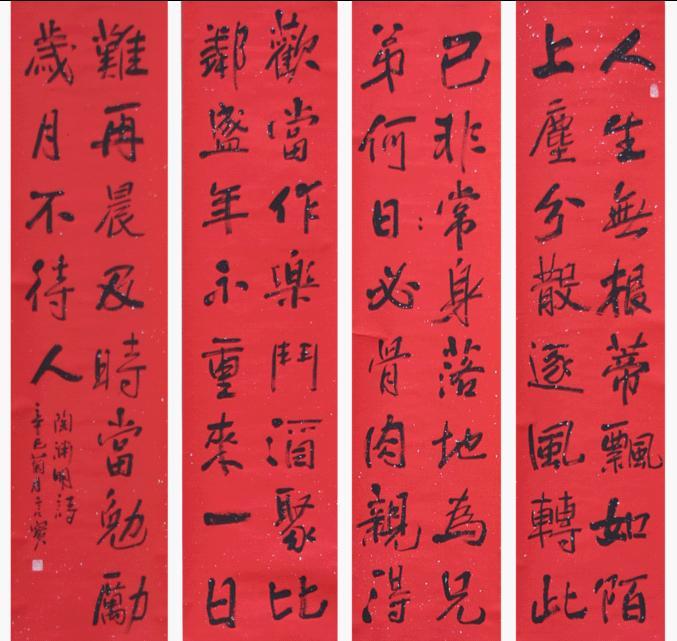 人生無根蒂飄如陌
上塵分散逐風轉此
已非常身落地為兄
弟何日必骨肉親得
歡當作樂鬥酒聚比
鄰盛年不重來一日
難再晨及時當勉勵
歲月不待人
陶淵明詩
辛巳